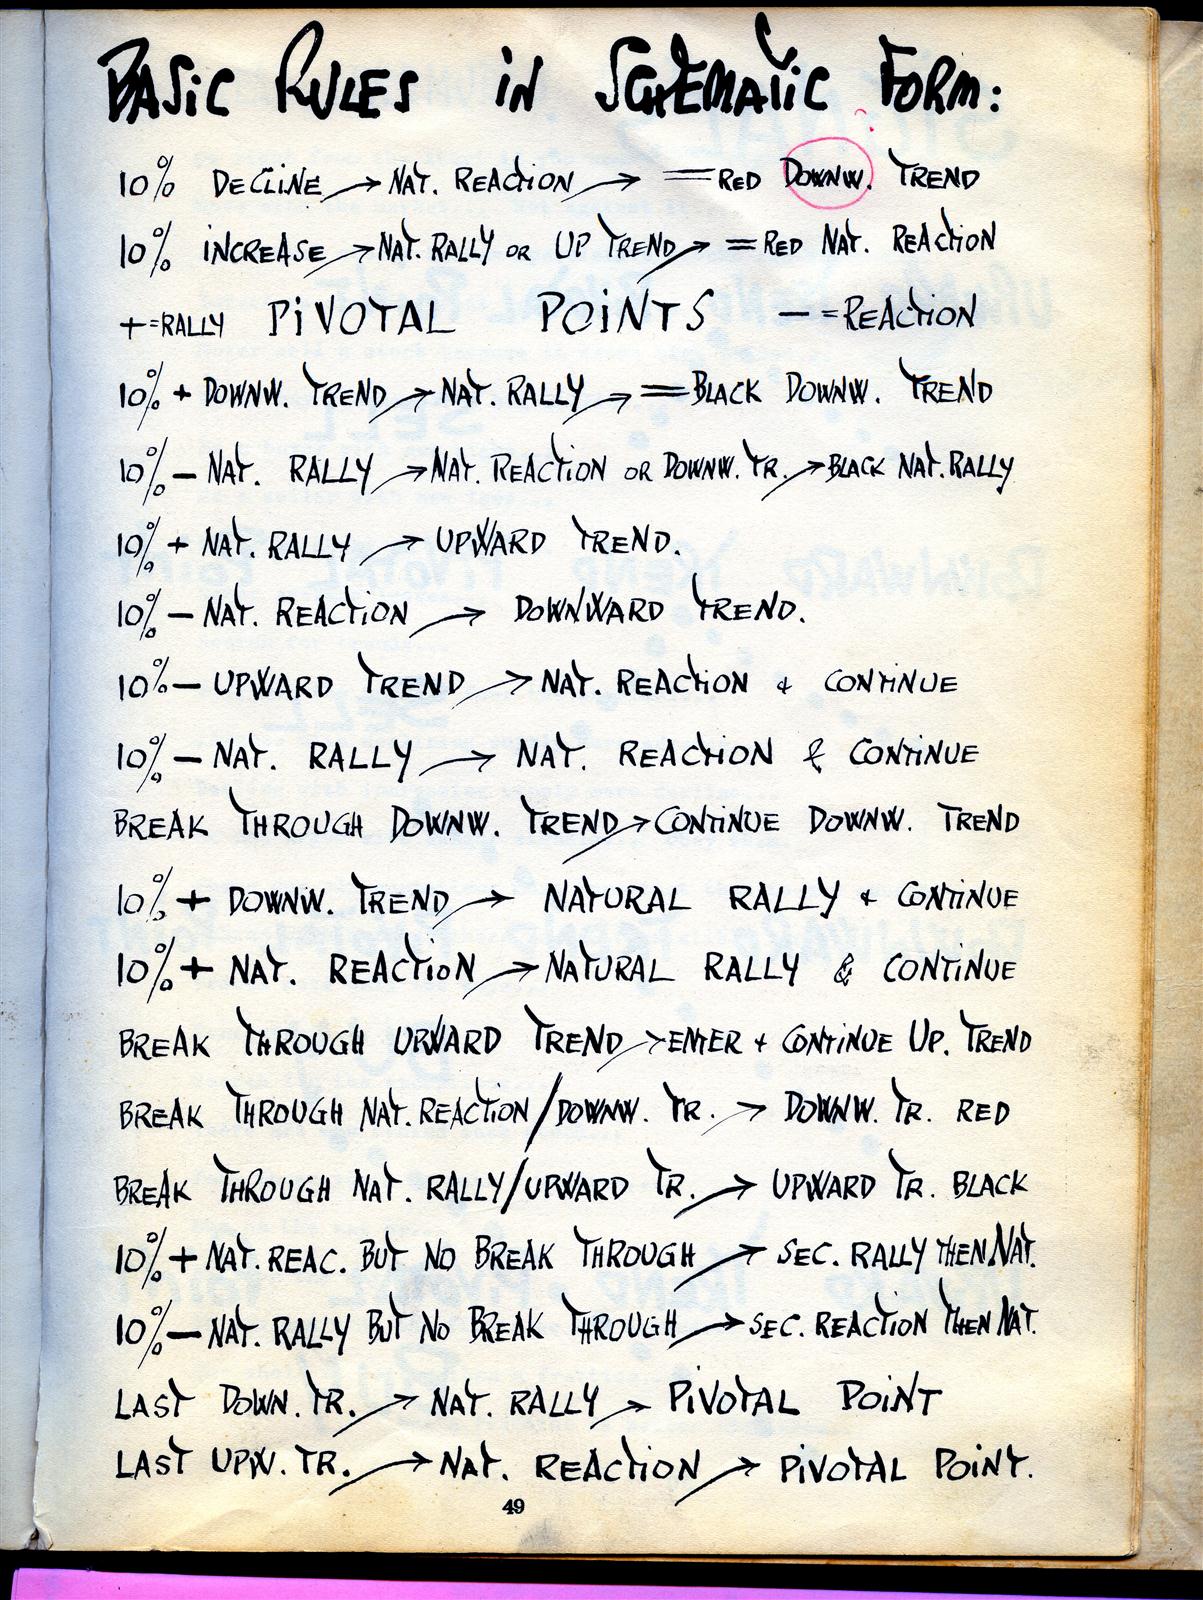 BASIC RULES IN SCHEMATIC FORM:
10% DECLINE → NAT. REACTION → = RED DOWNW. TREND
10% INCREASE → NAT. RALLY OR UP TREND → = RED NAT. REACTION
+ = RALLY PIVOTAL POINTS — = REACTION
10% + DOWNW. TREND → NAT. RALLY → = BLACK DOWNW. TREND
10% — NAT. RALLY → NAT. REACTION OR DOWNW. TR. → BLACK NAT. RALLY
10% + NAT. RALLY → UPWARD TREND.
10% — NAT. REACTION → DOWNWARD TREND.
10% — UPWARD TREND → NAT. REACTION + CONTINUE
10% — NAT. RALLY → NAT. REACTION & CONTINUE
BREAK THROUGH DOWNW. TREND → CONTINUE DOWNW. TREND
10% + DOWNW. TREND → NATURAL RALLY + CONTINUE
10% + NAT. REACTION → NATURAL RALLY & CONTINUE
BREAK THROUGH UPWARD TREND → ENTER + CONTINUE UP. TREND
BREAK THROUGH NAT. REACTION/DOWNW. TR. → DOWNW. TR. RED
BREAK THROUGH NAT. RALLY/UPWARD TR. → UPWARD TR. BLACK
10% + NAT. REAC. BUT NO BREAK THROUGH → SEC. RALLY THEN NAT.
10% — NAT. RALLY BUT NO BREAK THROUGH → SEC. REACTION THEN NAT.
LAST DOWN. TR. → NAT. RALLY → PIVOTAL POINT
LAST UPW. TR. → NAT. REACTION → PIVOTAL POINT.
49